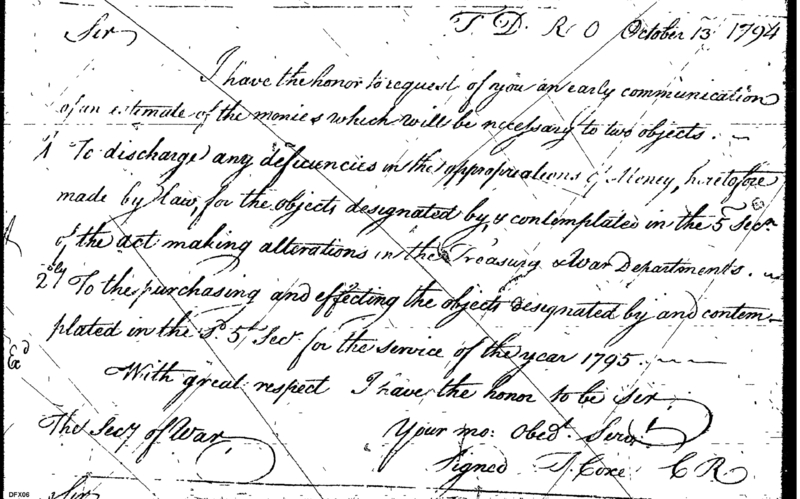 T. D. R O October 13 1794
Sir
I have the honor to request of you an early communication
of an estemate of the monies which will be necessary to two objects.
1 To discharge any deficiencies in the appropriations of Money, heretofore
made by law, for the objects designated by, & contemplated in the 5 Secn.
of the act making alterations in the Treasury & War Departments.
2dly To the purchasing and effecting the objects designated by and contem-
plated in the Sd. 5 Sect. for the service of the year 1795.
Exd
With great respect I have the honor to be Sir
The Secy of War
Your mo: Obedt. Servt
Signed T. Coxe C R
Sir
DFX06